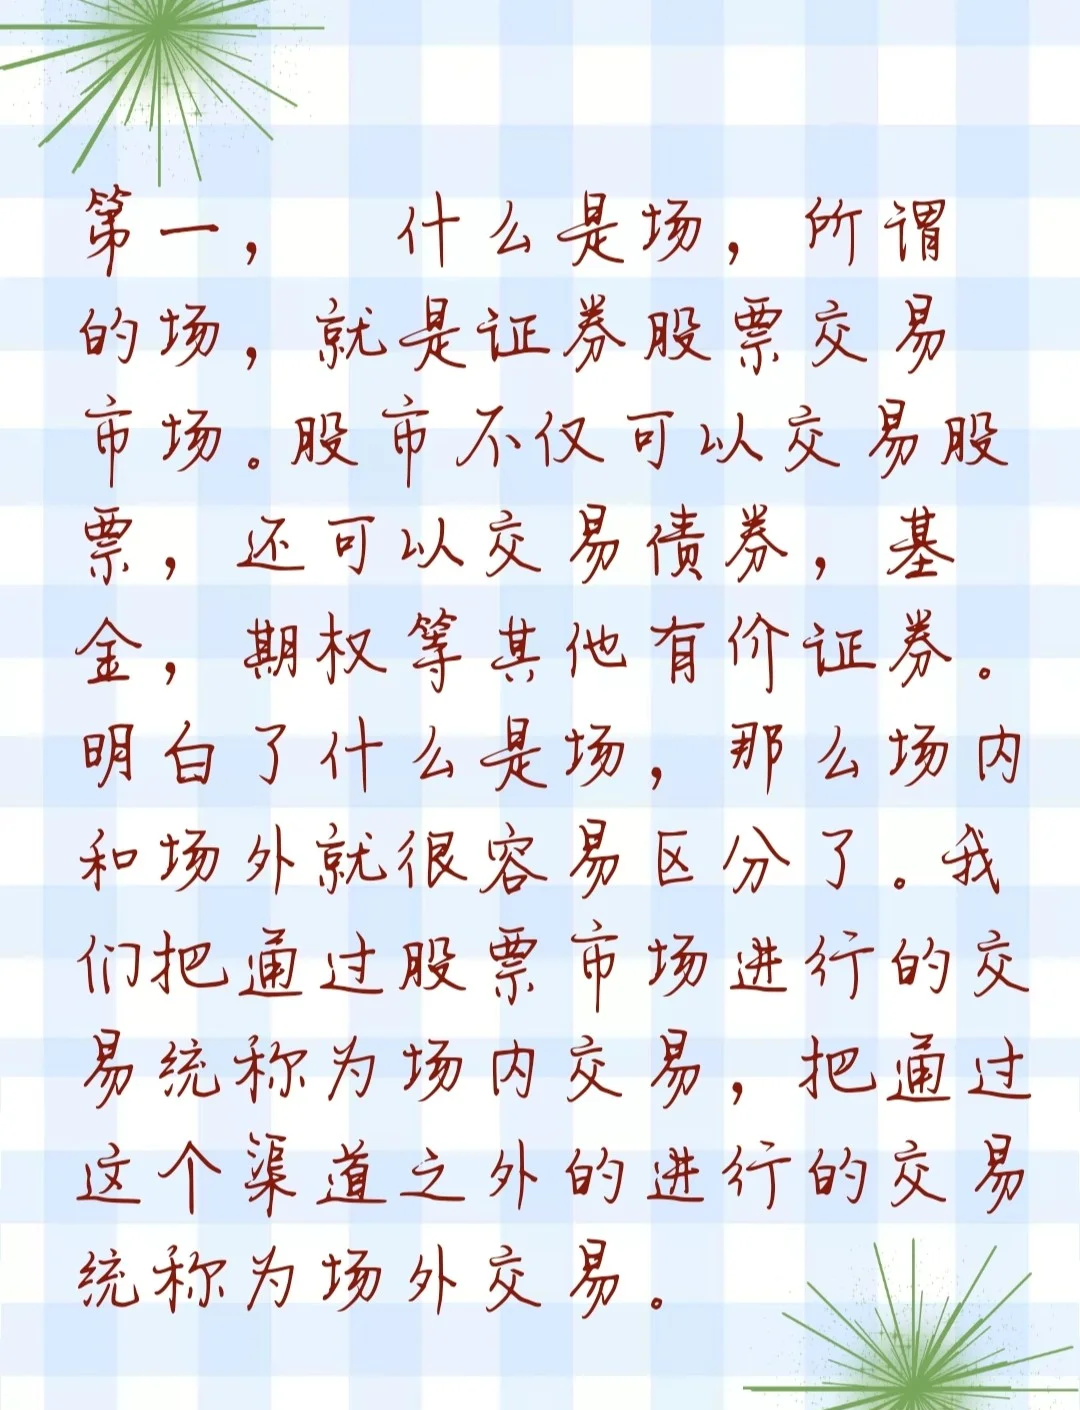 第一， 什么是场，所谓
的场，就是证券股票交易
市场。股市不仅可以交易股
票，还可以交易债券，基
金，期权等其他有价证券。
明白了什么是场，那么场内
和场外就很容易区分了。我
们把通过股票市场进行的交
易统称为场内交易，把通过
这个渠道之外的进行的交易
统称为场外交易。